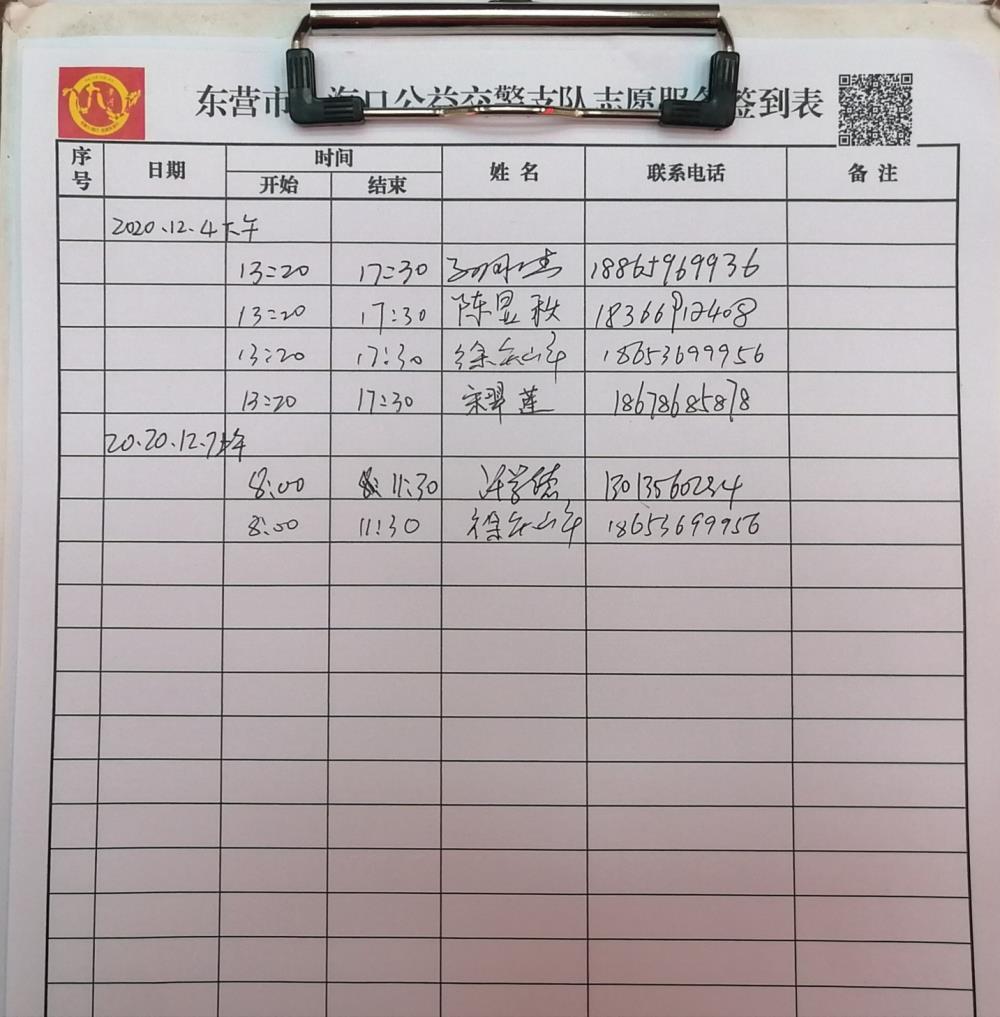 东营市 海口公益交警支队志愿服务签到表
序号 日期 时间 姓名 联系电话 备注
开始 结束
2020.12.4下午
13:20 17:30 18865969936
13:20 17:30 陈昱秋 18366912408
13:20 17:30 18653699956
13:20 17:30 宋翠莲 18678685878
20.20.12.7上午
8:00 11:30 许学德 13013560234
8:00 11:30 18653699956